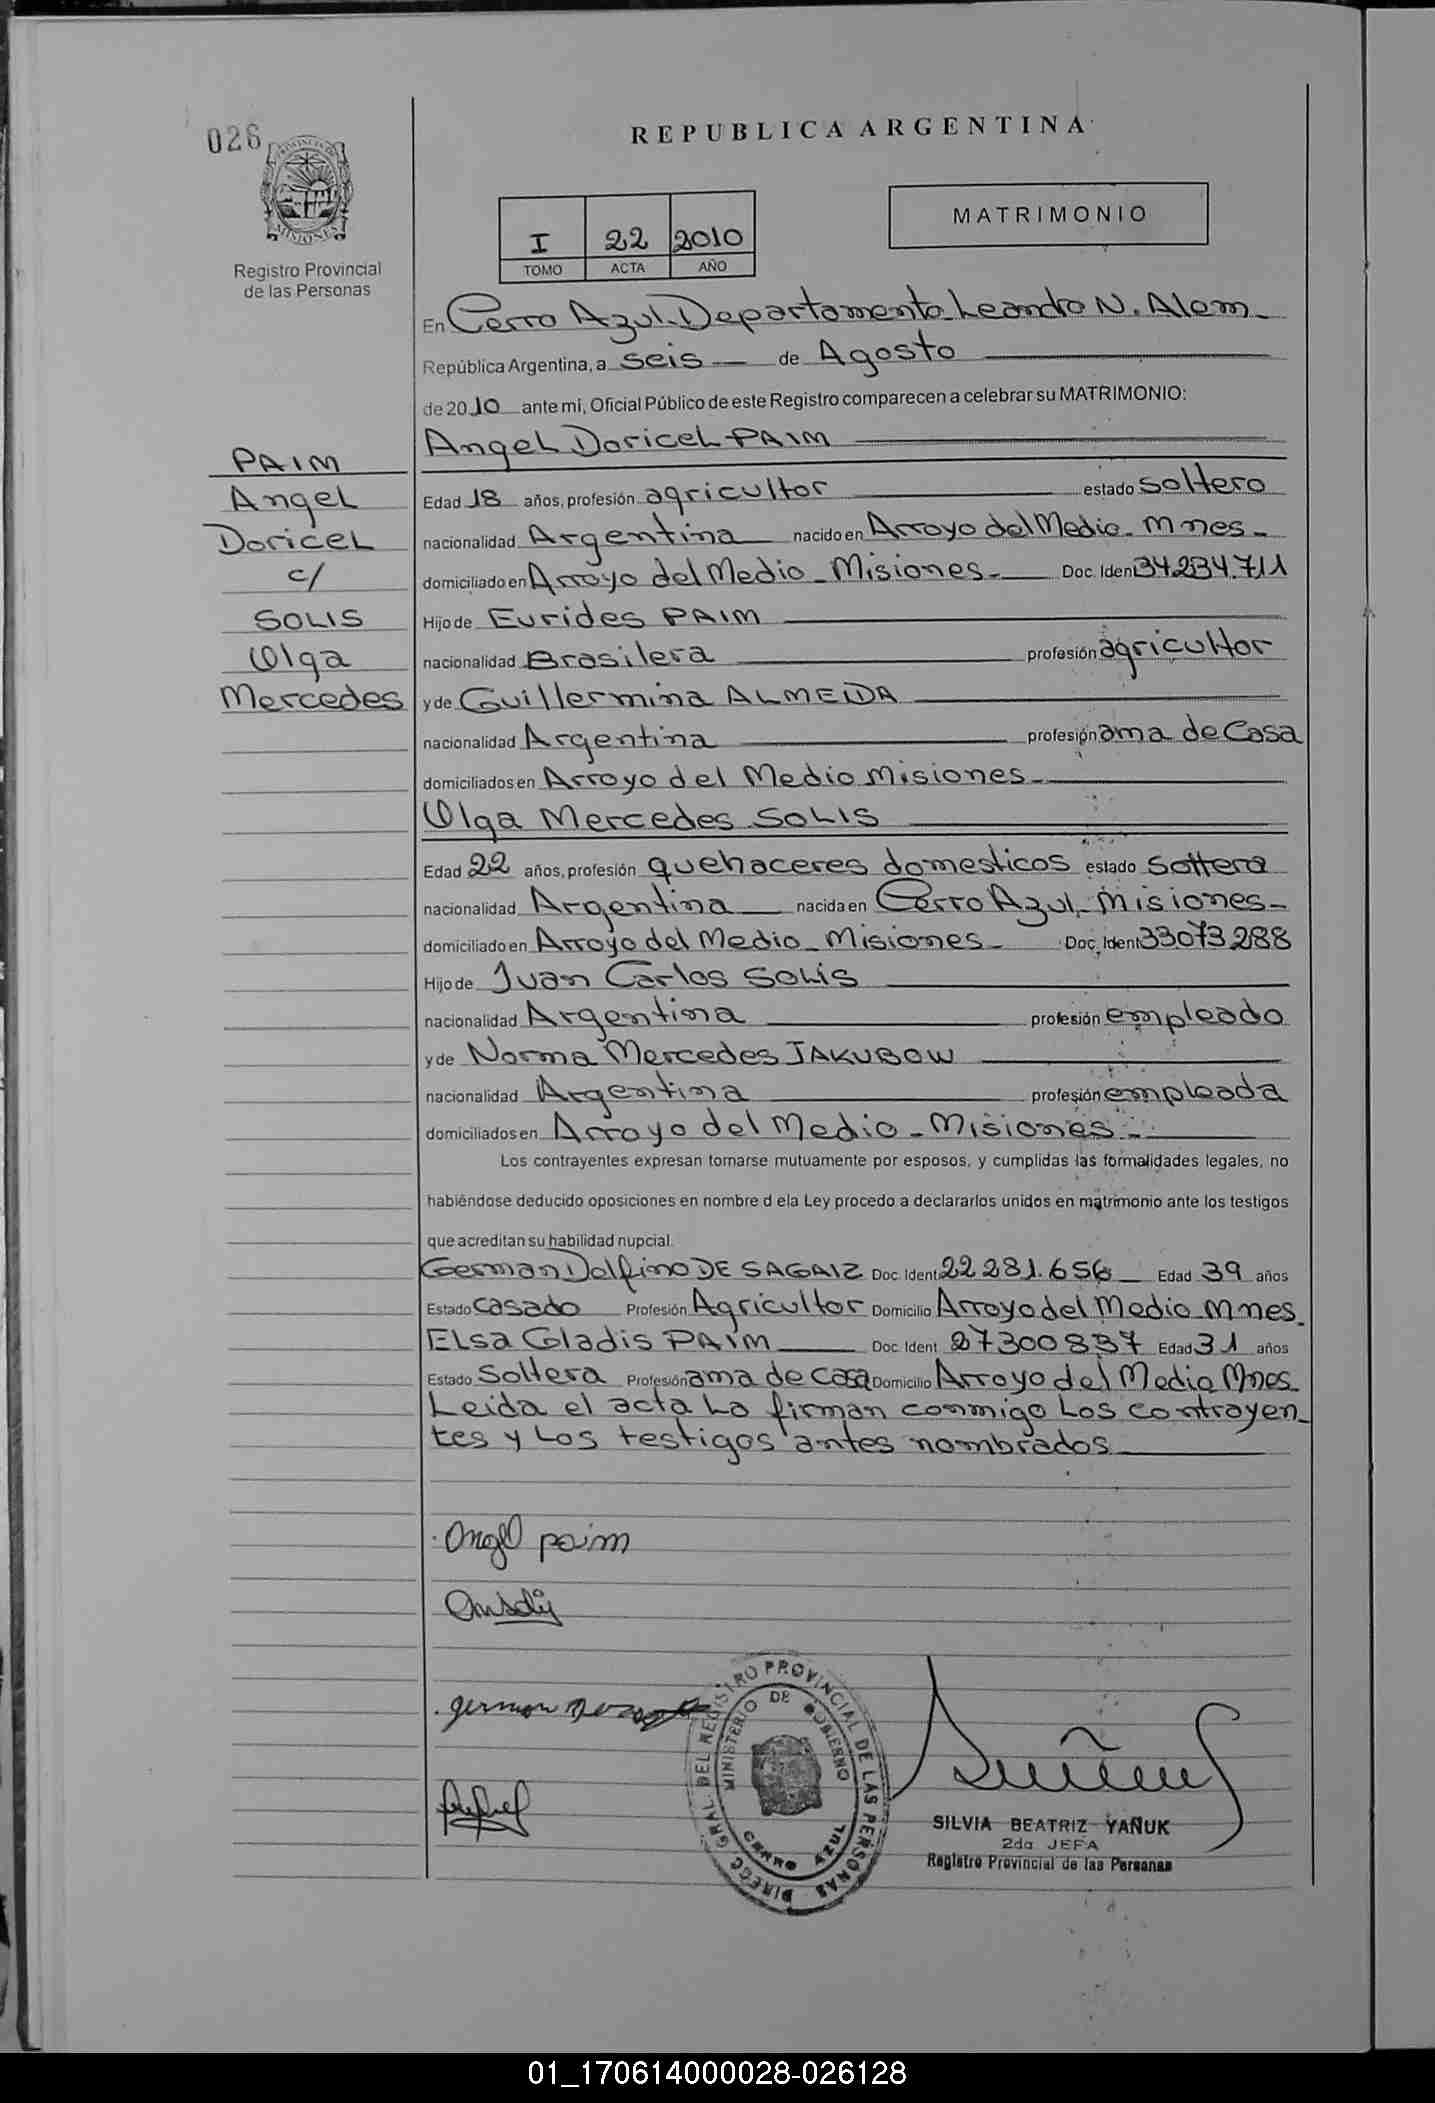 026
REPUBLICA ARGENTINA
MATRIMONIO
I 22 2010
TOMO ACTA AÑO
PROVINCIA DE MISIONES
Registro Provincial
de las Personas
En Cerro Azul Departamento Leandro N. Alem
República Argentina, a seis de Agosto
de 2010 ante mi, Oficial Público de este Registro comparecen a celebrar su MATRIMONIO:
PAIM
Angel
Doricel
c/
SOLIS
Olga
Mercedes
Angel Doricel PAIM
Edad 18 años, profesión agricultor estado soltero
nacionalidad Argentina nacido en Arroyo del Medio - Mnes -
domiciliado en Arroyo del Medio - Misiones - Doc. Iden 34.234.711
Hijo de Eurides PAIM
nacionalidad Brasilera profesión agricultor
y de Guillermina ALMEIDA
nacionalidad Argentina profesión ama de Casa
domiciliados en Arroyo del Medio Misiones -
Olga Mercedes SOLIS
Edad 22 años, profesión quehaceres domesticos estado soltera
nacionalidad Argentina nacida en Cerro Azul, Misiones -
domiciliado en Arroyo del Medio - Misiones - Doc. Ident 33073288
Hijo de Juan Carlos SOLIS
nacionalidad Argentina profesión empleado
y de Norma Mercedes JAKUBOW
nacionalidad Argentina profesión empleada
domiciliados en Arroyo del Medio - Misiones -
Los contrayentes expresan tomarse mutuamente por esposos, y cumplidas las formalidades legales, no
habiéndose deducido oposiciones en nombre d ela Ley procedo a declararlos unidos en matrimonio ante los testigos
que acreditan su habilidad nupcial.
German Dolfino DE SAGAIZ Doc. Ident 22 281.656 Edad 39 años
Estado casado Profesión Agricultor Domicilio Arroyo del Medio Mnes
ELSA Gladis PAIM Doc. Ident. 27300837 Edad 31 años
Estado Soltera Profesión ama de casa Domicilio Arroyo del Medio Mnes
Leida el acta la firman conmigo los contrayen-
tes y los testigos antes nombrados
Angel paim
german
DIRECC. GRAL. DEL REGISTRO PROVINCIAL DE LAS PERSONAS
MINISTERIO DE GOBIERNO
CERRO AZUL
SILVIA BEATRIZ YAÑUK
2da JEFA
Registro Provincial de las Personas
01_170614000028-026128